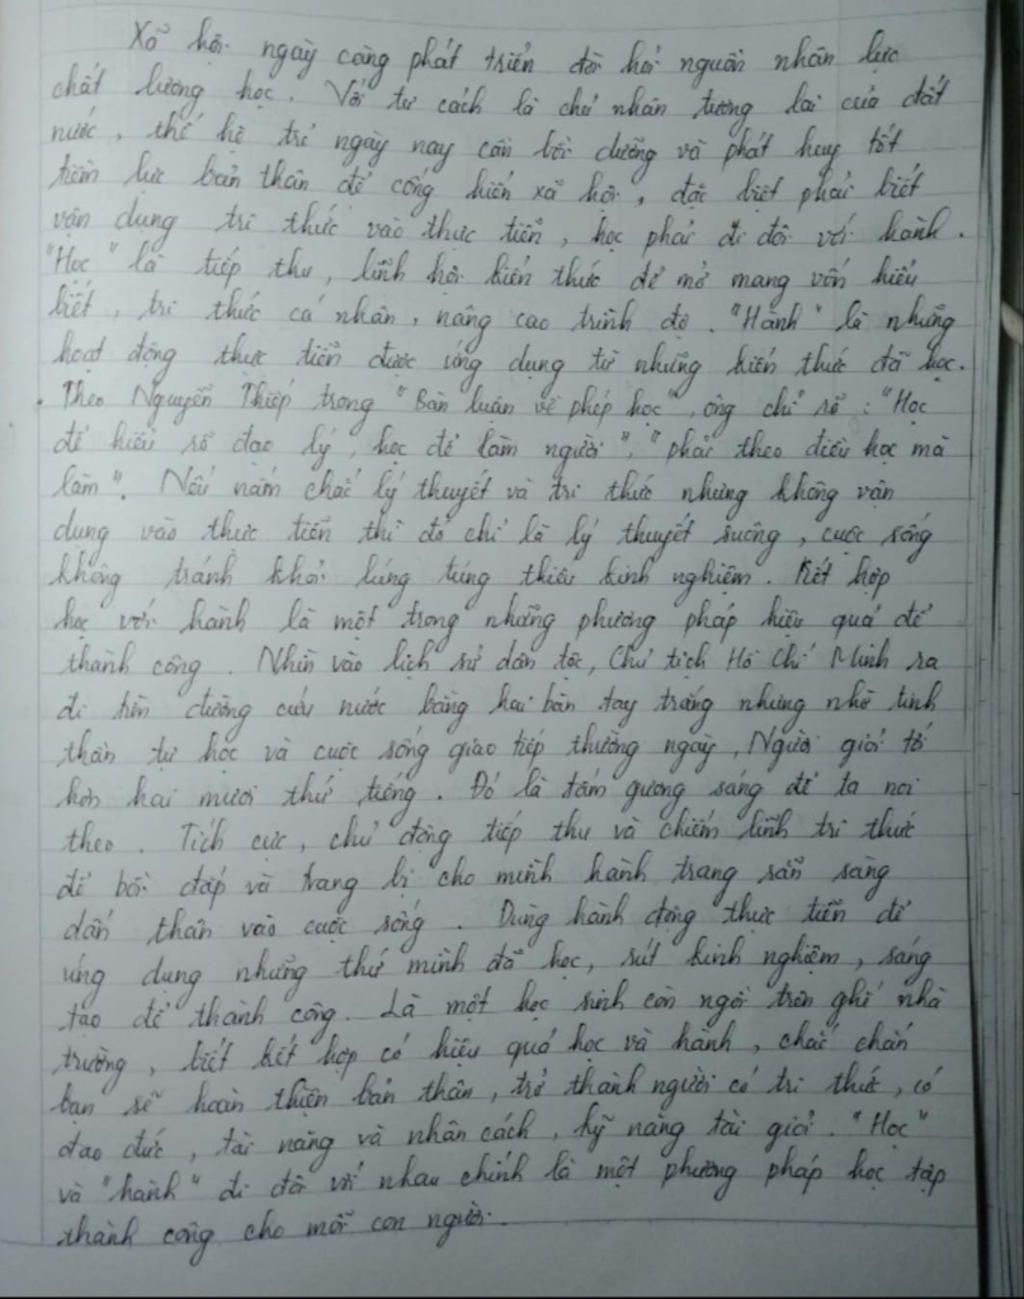 Xã hội ngày càng phát triển đòi hỏi nguồn nhân lực
chất lượng học. Với tư cách là chủ nhân tương lai của đất
nước, thế hệ trẻ ngày nay cần bồi dưỡng và phát huy tốt
tiềm lực bản thân để cống hiến xã hội, đặc biệt phải biết
vận dụng tri thức vào thực tiễn, học phải đi đôi với hành.
"Học" là tiếp thu, lĩnh hội kiến thức để mở mang vốn hiểu
biết, tri thức cá nhân, nâng cao trình độ. "Hành" là những
hoạt động thực tiễn được ứng dụng từ những kiến thức đã học.
Theo Nguyễn Thiếp trong "Bàn luận về phép học", ông chỉ rõ: "Học
để hiểu rõ đạo lý, học để làm người", "phải theo điều học mà
làm". Nếu nắm chắc lý thuyết và tri thức nhưng không vận
dụng vào thực tiễn thì đó chỉ là lý thuyết suông, cuộc sống
không tránh khỏi lúng túng thiếu kinh nghiệm. Kết hợp
học với hành là một trong những phương pháp hiệu quả để
thành công. Nhìn vào lịch sử dân tộc, Chủ tịch Hồ Chí Minh ra
đi tìm đường cứu nước bằng hai bàn tay trắng nhưng nhờ tinh
thần tự học và cuộc sống giao tiếp thường ngày, Người giỏi tới
hơn hai mươi thứ tiếng. Đó là tấm gương sáng để ta noi
theo. Tích cực, chủ động tiếp thu và chiếm lĩnh tri thức
để bồi đắp và trang bị cho mình hành trang sẵn sàng
dấn thân vào cuộc sống. Dùng hành động thực tiễn để
ứng dụng những thứ mình đã học, rút kinh nghiệm, sáng
tạo để thành công. Là một học sinh còn ngồi trên ghế nhà
trường, biết kết hợp có hiệu quả học và hành, chắc chắn
bạn sẽ hoàn thiện bản thân, trở thành người có tri thức, có
đạo đức, tài năng và nhân cách, kỹ năng tài giỏi. "Học"
và "hành" đi đôi với nhau chính là một phương pháp học tập
thành công cho mỗi con người.